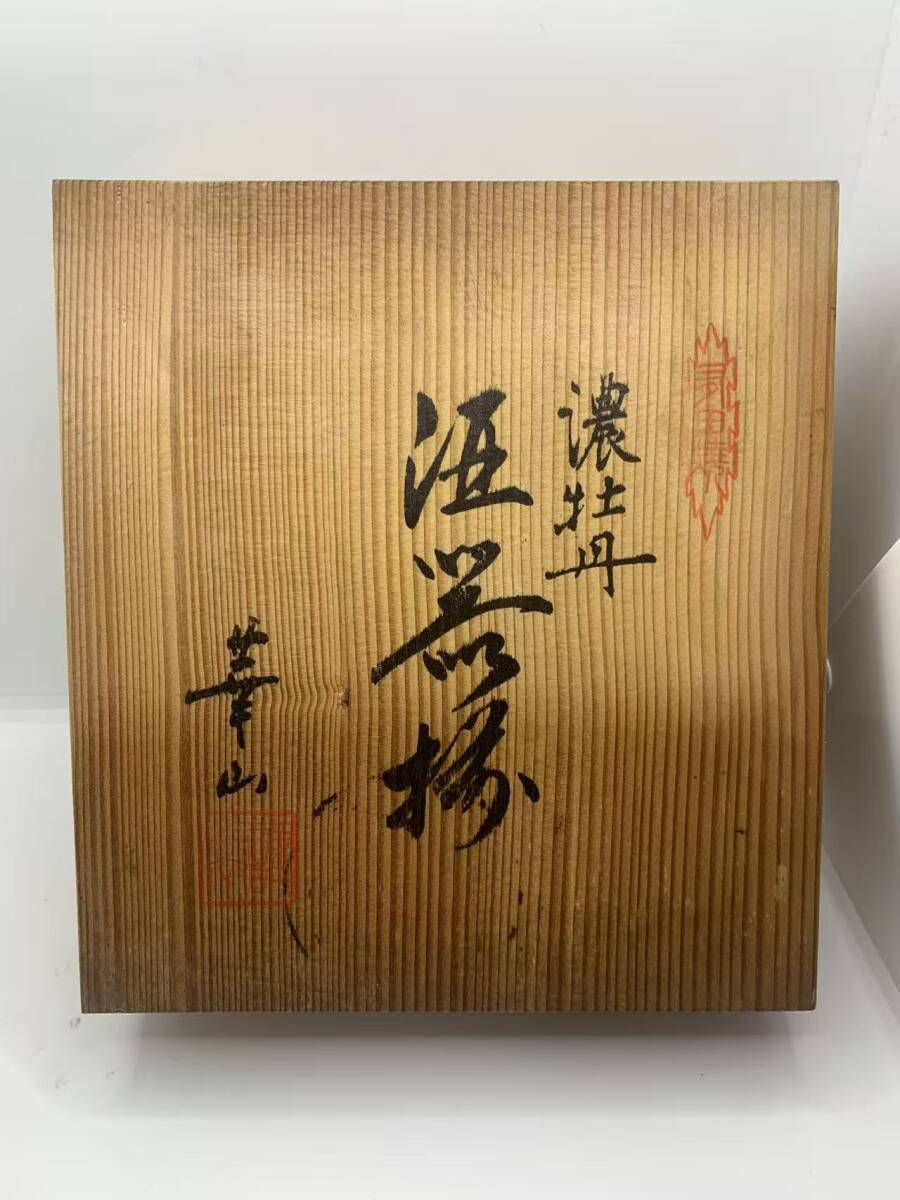 濃牡丹
酒器揃
華山